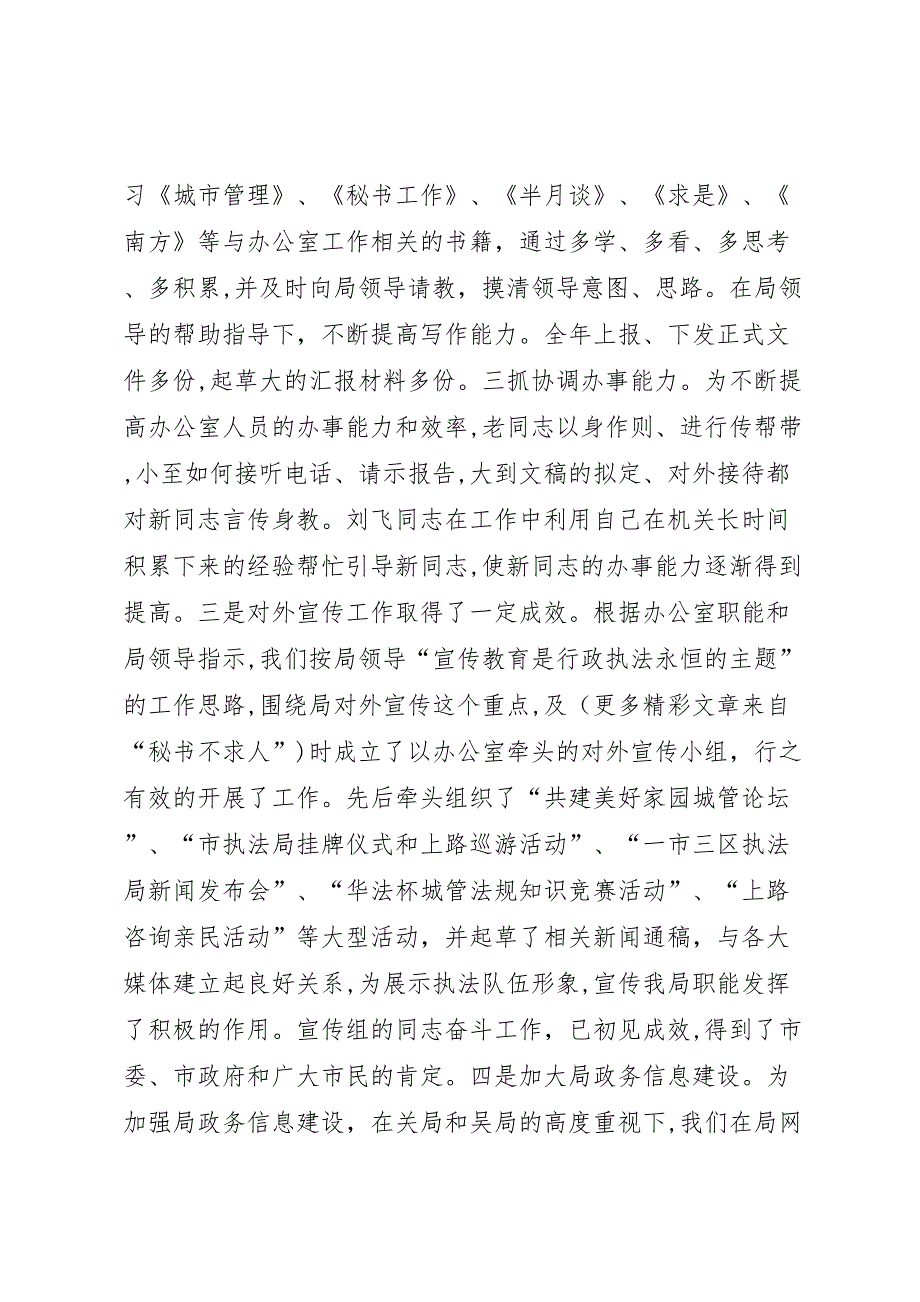 习《城市管理》、《秘书工作》、《半月谈》、《求是》、《
南方》等与办公室工作相关的书籍，通过多学、多看、多思考
、多积累,并及时向局领导请教，摸清领导意图、思路。在局领
导的帮助指导下，不断提高写作能力。全年上报、下发正式文
件多份,起草大的汇报材料多份。三抓协调办事能力。为不断提
高办公室人员的办事能力和效率,老同志以身作则、进行传帮带
,小至如何接听电话、请示报告,大到文稿的拟定、对外接待都
对新同志言传身教。刘飞同志在工作中利用自己在机关长时间
积累下来的经验帮忙引导新同志,使新同志的办事能力逐渐得到
提高。三是对外宣传工作取得了一定成效。根据办公室职能和
局领导指示,我们按局领导“宣传教育是行政执法永恒的主题”
的工作思路,围绕局对外宣传这个重点,及（更多精彩文章来自
“秘书不求人”)时成立了以办公室牵头的对外宣传小组，行之
有效的开展了工作。先后牵头组织了“共建美好家园城管论坛
”、“市执法局挂牌仪式和上路巡游活动”、“一市三区执法
局新闻发布会”、“华法杯城管法规知识竞赛活动”、“上路
咨询亲民活动”等大型活动，并起草了相关新闻通稿，与各大
媒体建立起良好关系,为展示执法队伍形象,宣传我局职能发挥
了积极的作用。宣传组的同志奋斗工作，已初见成效,得到了市
委、市政府和广大市民的肯定。四是加大局政务信息建设。为
加强局政务信息建设，在关局和吴局的高度重视下,我们在局网